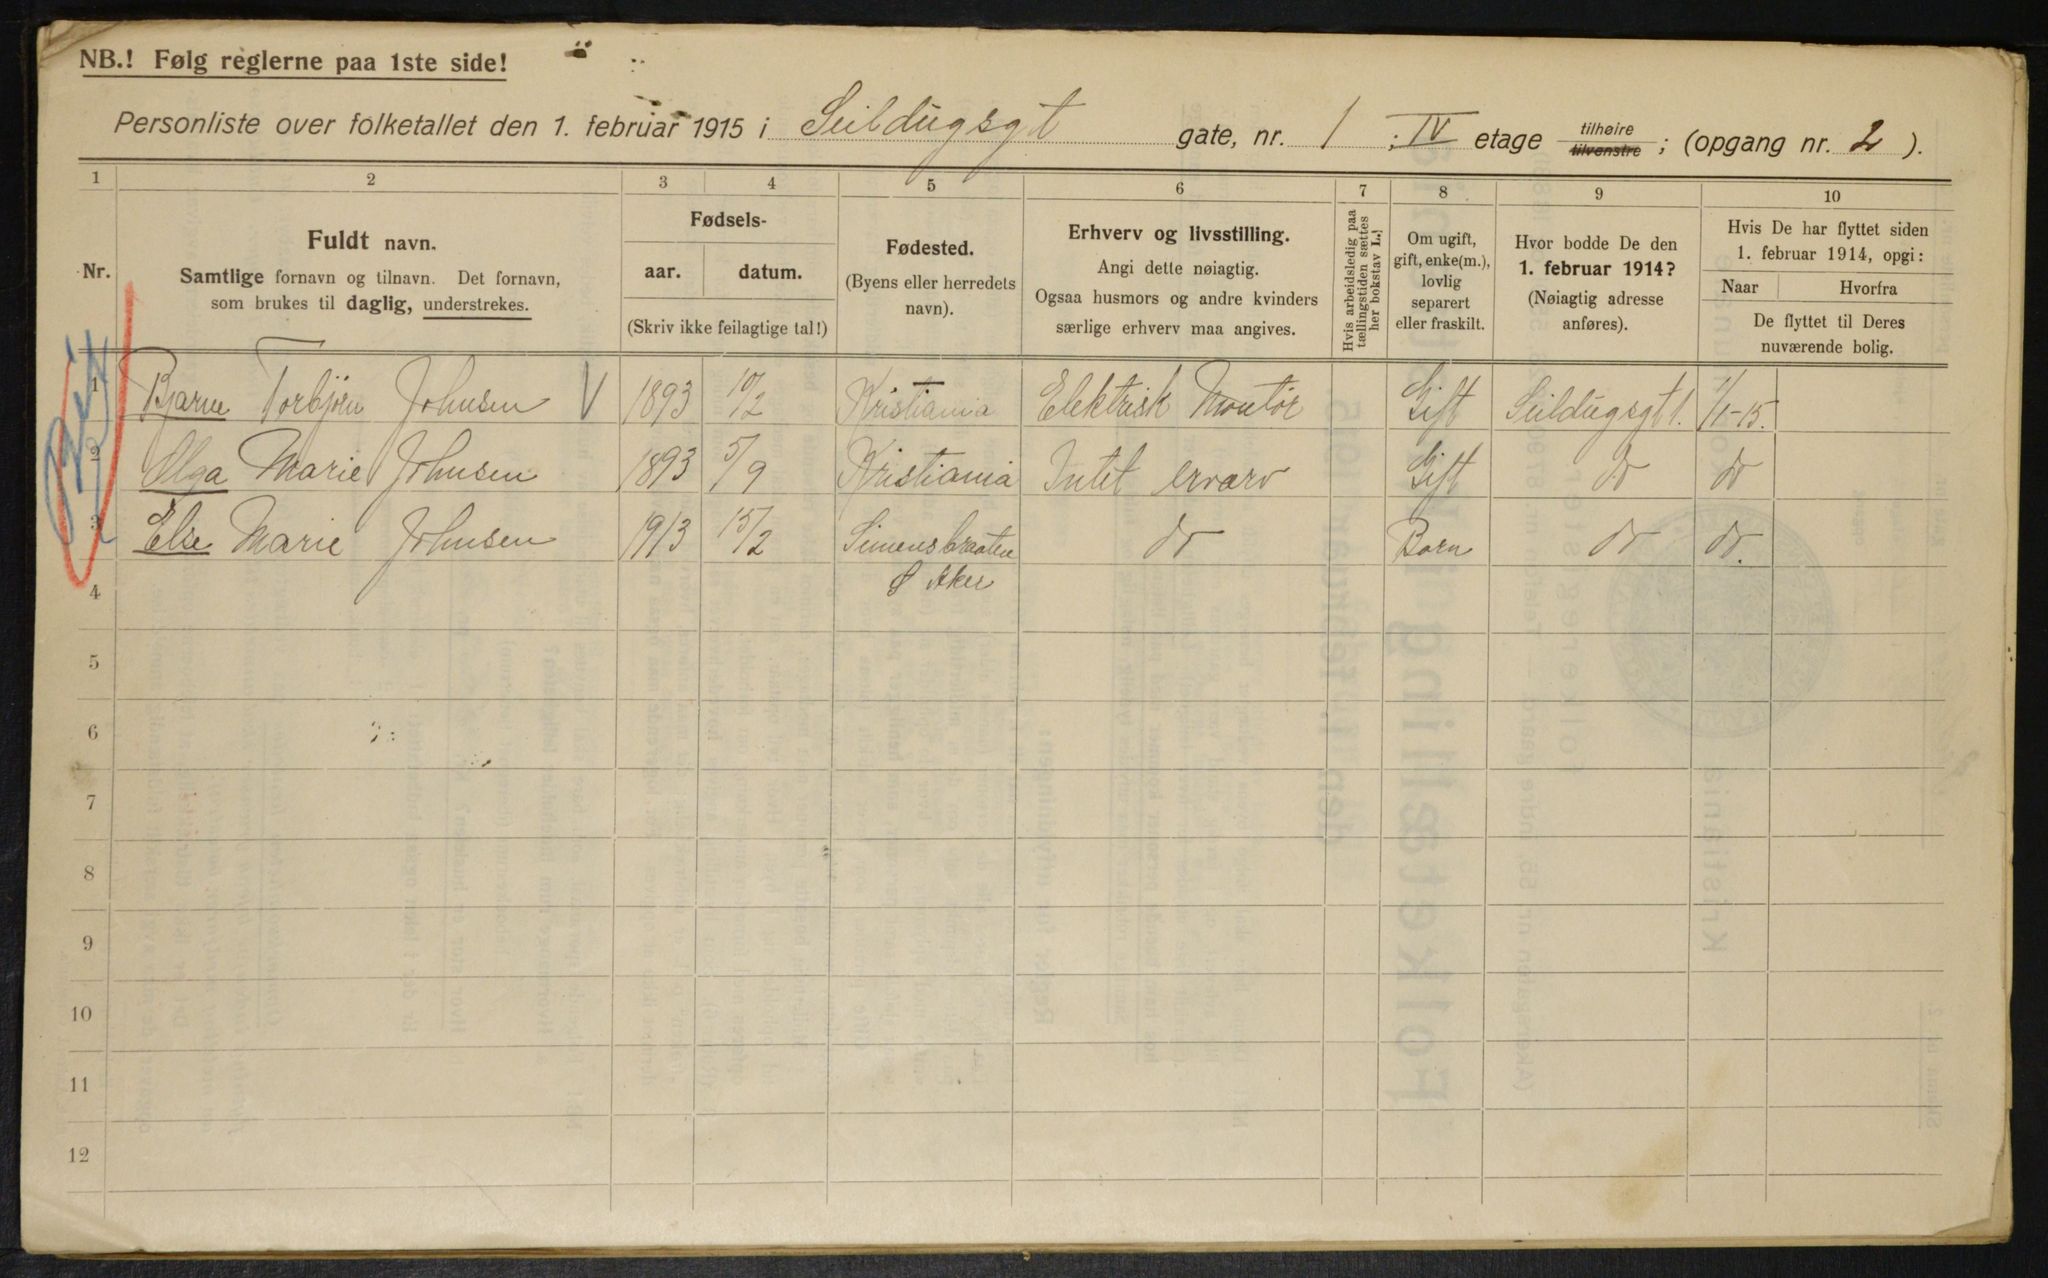 NB.! Følg reglerne paa 1ste side!
Personliste over folketallet den 1. februar 1915 i Seildugsgt gate, nr. 1 ; IV etage tilhøire tilvenstre ; (opgang nr. 2 ).
1 2 3 4 5 6 7 8 9 10
Nr.
Fuldt navn.
Samtlige fornavn og tilnavn. Det fornavn,
som brukes til daglig, understrekes.
Fødsels-
aar. datum.
(Skriv ikke feilagtige tal!)
Fødested.
(Byens eller herredets
navn).
Erhverv og livsstilling.
Angi dette nøiagtig.
Ogsaa husmors og andre kvinders
særlige erhverv maa angives.
Hvis arbeidsledig paa
tællingstiden sættes
her bokstav L.]
Om ugift,
gift, enke(m.),
lovlig
separert
eller fraskilt.
Hvor bodde De den
1. februar 1914?
(Nøiagtig adresse
anføres).
Hvis De har flyttet siden
1. februar 1914, opgi:
Naar Hvorfra
De flyttet til Deres
nuværende bolig.
1 Bjarne Torbjörn Johnsen V 1893 10/2 Kristiania Elektrisk Montör Gift Seildugsgt 1. 1/1-15.
2 Olga Marie Johnsen 1893 5/9 Kristiania Intet ervarv Gift do do
3 Else Marie Johnsen 1913 15/2 Simensbraaten do Barn do do.
Ø Aker
4
5
6
7
8
9
10
11
12